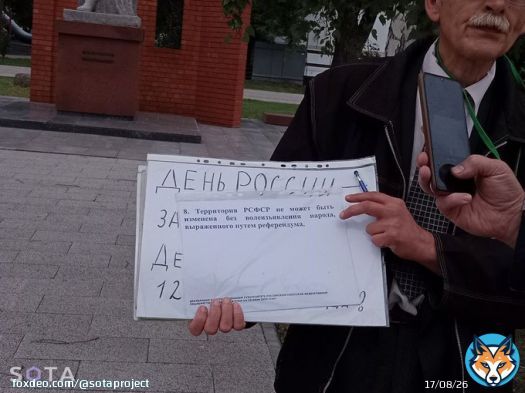 ДЕНЬ РОССИИ
ЗА
8. Территория РСФСР не может быть
изменена без волеизъявления народа,
выраженного путем референдума.
ДЕ
12
?
SOTA
foxdeo.com/@sotaproject
17/08/26